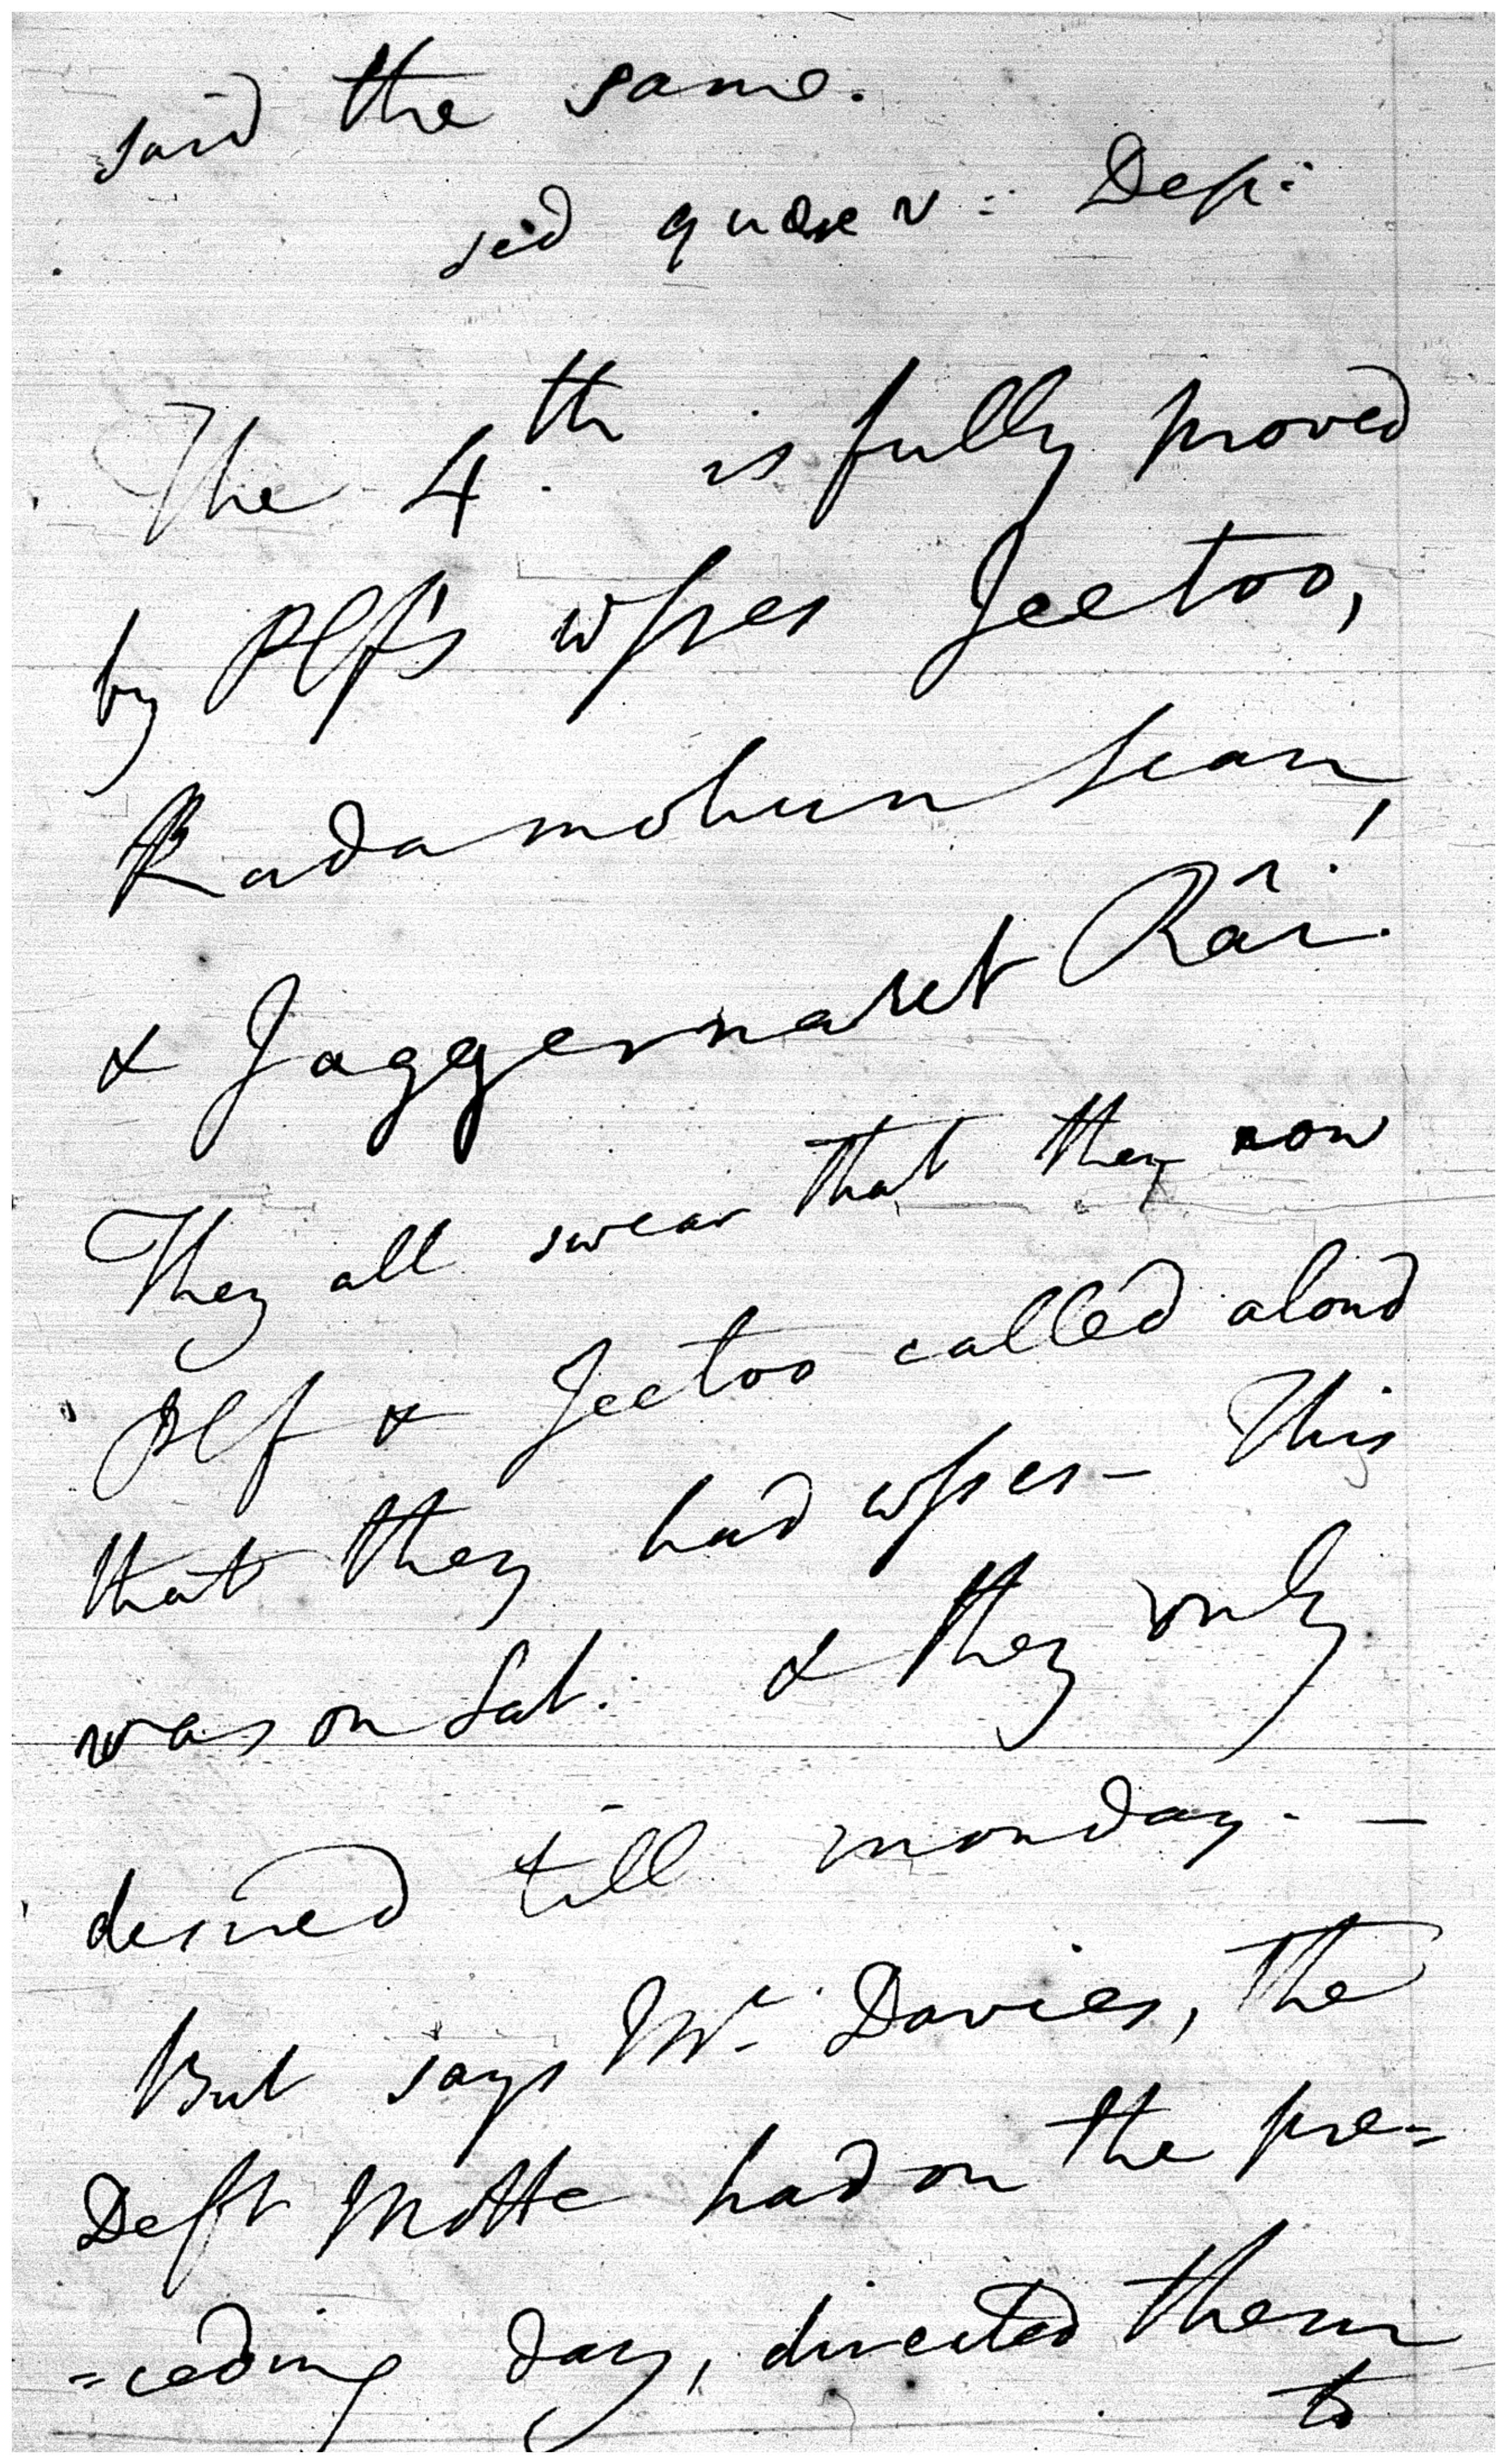 said the same.
sed quære: Dep:
The 4th. is fully proved
by Plf's wsses Jeetoo,
Radamohun Sean,
& Jaggernaut Râi.
They all swear that they now
Plf & Jeetoo called aloud
that they had wsses— This
was on Sat. & they only
desired till monday. —
But says Mr. Davies, the
Deft Motte had on the pre=
=ceding day, directed them
to